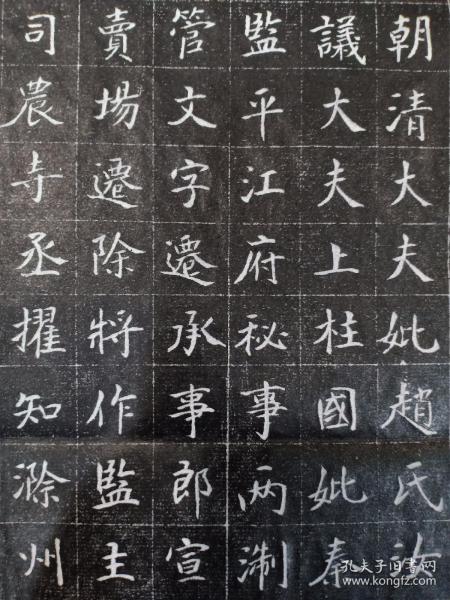 朝清大夫妣趙氏
議大夫上柱國妣秦
監平江府秘事两淛
管文字遷承事郎宣
賣場遷除將作監主
司農寺丞擢知滁州
孔夫子旧书网
www.kongfz.com